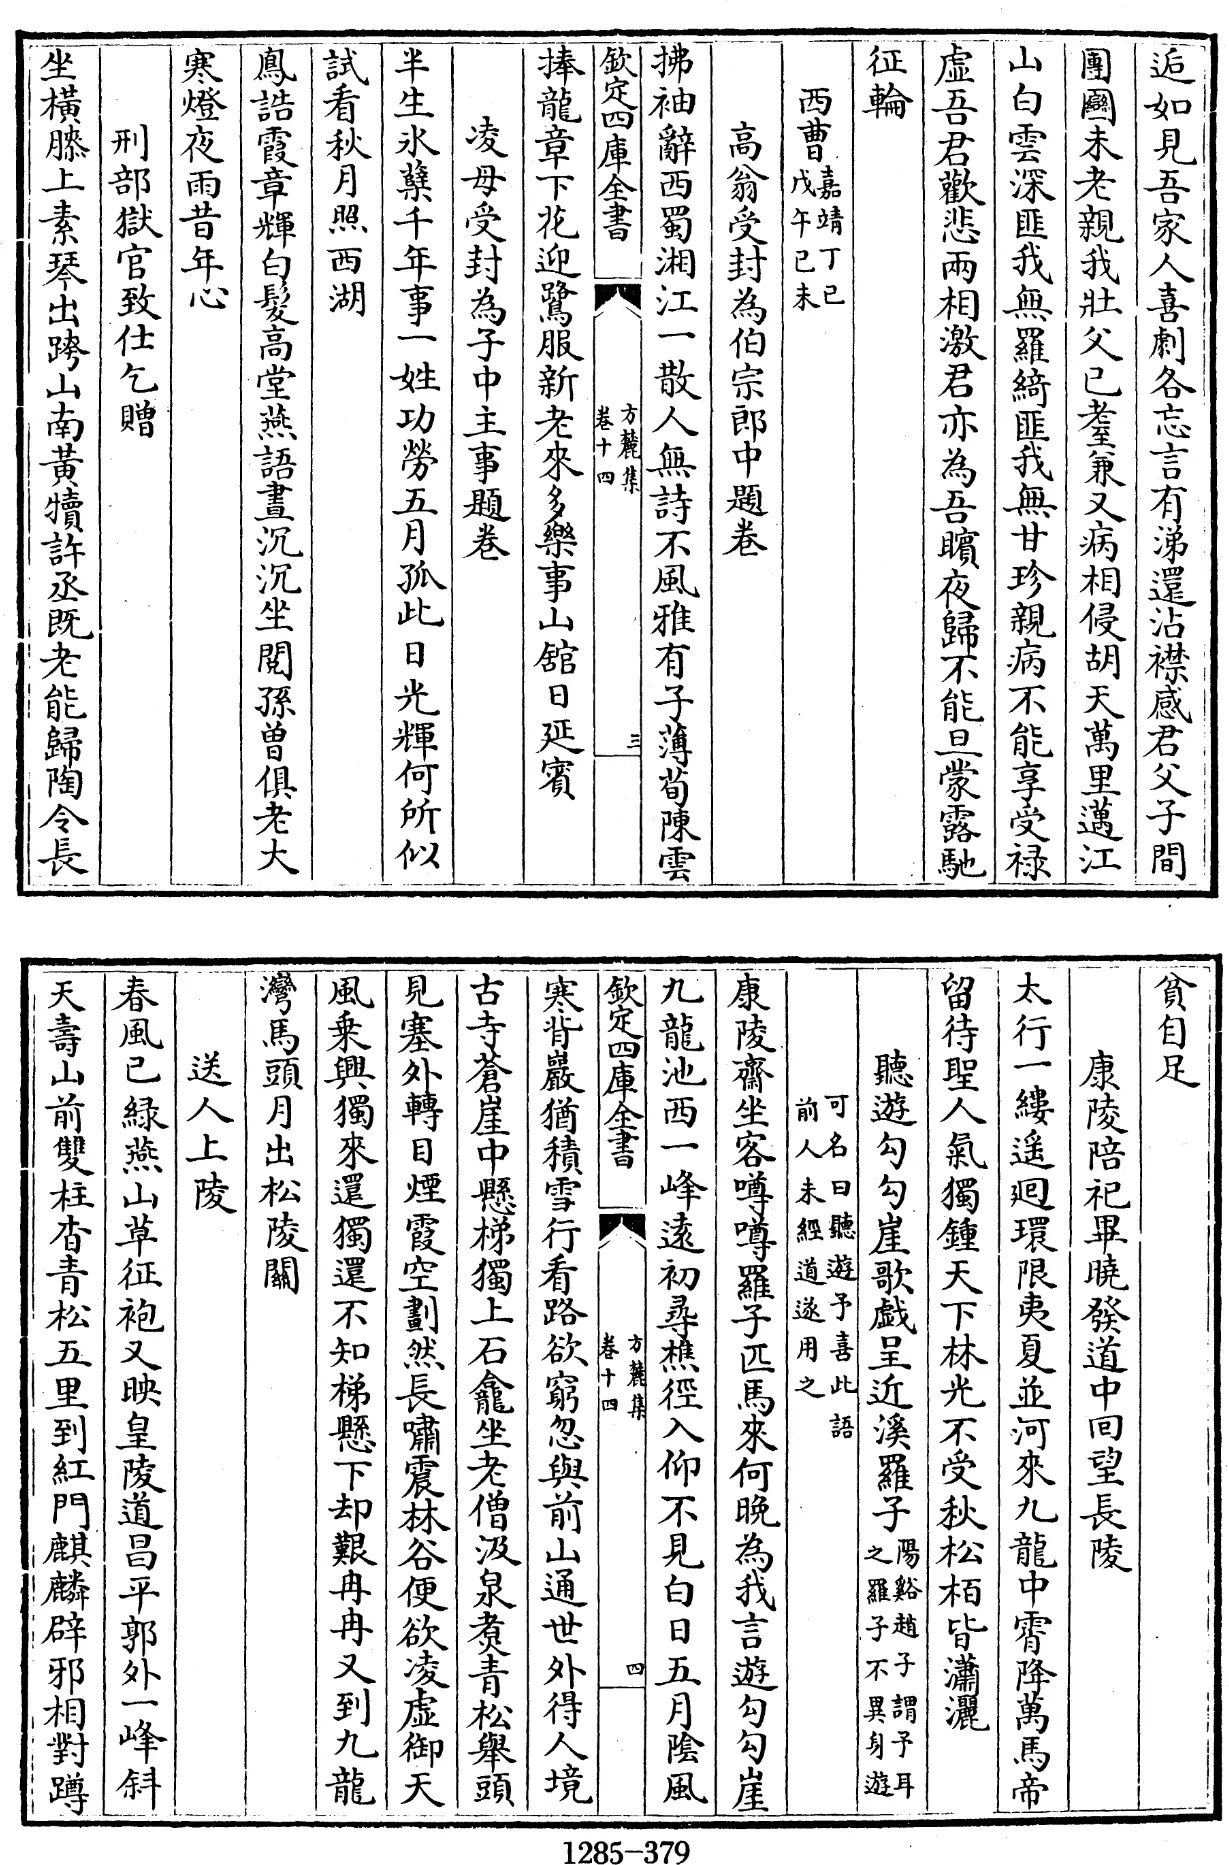 逅如見吾家人喜劇各忘言有涕還沾襟感君父子間
團圝未老親我壯父已耋兼又病相侵胡天萬里邁江
山白雲深匪我無羅綺匪我無甘珍親病不能享受祿
虛吾君歡悲兩相激君亦為吾矉夜歸不能旦蒙露馳
征輪
西曹嘉靖丁巳
戊午已未
高翁受封為伯宗郎中題卷
拂袖辭西蜀湘江一散人無詩不風雅有子薄荀陳雲
欽定四庫全書
方麓集
卷十四
三
捧龍章下花迎鷺服新老來多樂事山館日延賓
凌母受封為子中主事題卷
半生氷蘖千年事一姓功勞五月孤此日光輝何所似
試看秋月照西湖
鳳誥霞章輝白髮高堂燕語晝沉沉坐閱孫曾俱老大
寒燈夜雨昔年心
刑部獄官致仕乞贈
坐橫膝上素琴出跨山南黃犢許丞既老能歸陶令長
貧自足
康陵陪祀畢曉發道中回望長陵
太行一縷遥迴環限夷夏並河來九龍中霄降萬馬帝
留待聖人氣獨鍾天下林光不受秋松栢皆瀟灑
聽遊勾勾崖歌戲呈近溪羅子陽谿趙子謂予耳
之羅子不異身遊
可名曰聽遊予喜此語
前人未經道遂用之
康陵齋坐客噂噂羅子匹馬來何晚為我言遊勾勾崖
九龍池西一峰遠初尋樵徑入仰不見白日五月陰風
欽定四庫全書
方麓集
卷十四
四
寒背巖猶積雪行看路欲窮忽與前山通世外得人境
古寺蒼崖中懸梯獨上石龕坐老僧汲泉煑青松舉頭
見塞外轉目煙霞空劃然長嘯震林谷便欲凌虛御天
風乗興獨來還獨還不知梯懸下却艱冉冉又到九龍
灣馬頭月出松陵關
送人上陵
春風已緑燕山草征袍又映皇陵道昌平郭外一峰斜
天壽山前雙柱杳青松五里到紅門麒麟辟邪相對蹲
1285-379